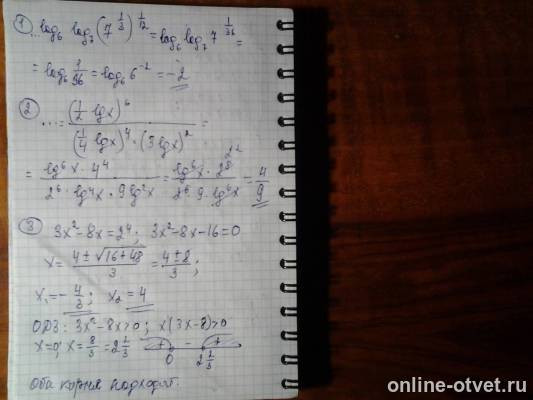 ① ...log₆ log₇ (7^(1/3))^(1/12) = log₆ log₇ 7^(1/36) =
= log₆ 1/36 = log₆ 6⁻² = -2
② ... = (1/2 lgx)⁶ / ((1/4 lgx)⁴ · (3 lgx)²) =
= lg⁶x · 4⁴ / (2⁶ · lg⁴x · 9 lg²x) = lg⁶x · 2⁸ / (2⁶ · 9 · lg⁶x) = 4/9
③ 3x²-8x=2⁴; 3x²-8x-16=0
x = (4±√(16+48))/3 = (4±8)/3;
x₁=-4/3; x₂=4
ОДЗ: 3x²-8x>0; x(3x-8)>0
x=0; x=8/3=2 2/3 + - +
0 2 2/3
Оба корня подходят.
online-otvet.ru